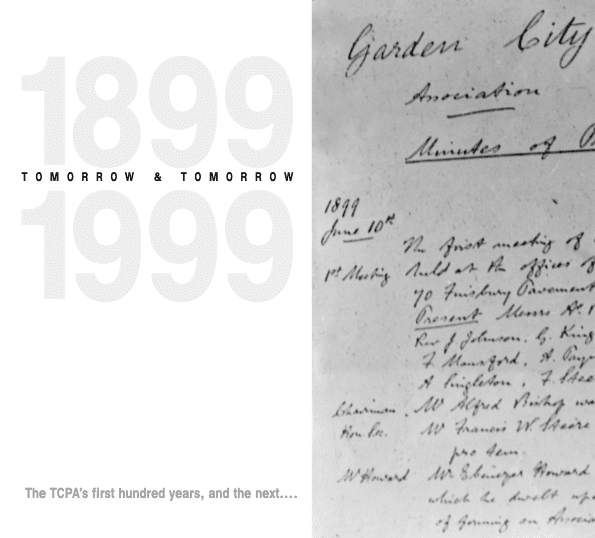 1899
TOMORROW & TOMORROW
1999
The TCPA's first hundred years, and the next....
Garden City
Association
Minutes of
1899
June 10th
The first meeting of
1st Meeting held at the offices of
70 Finsbury Pavement
Present Messrs A.
Rev J Johnson, G. King
F Mansford, H.
A Singleton, F. Steere
Chairman Mr Alfred Bishop was
Hon Sec. Mr Francis W. Steere
pro tem.
Mr Howard Mr Ebenezer Howard
which he dwelt upon
of forming an Associa